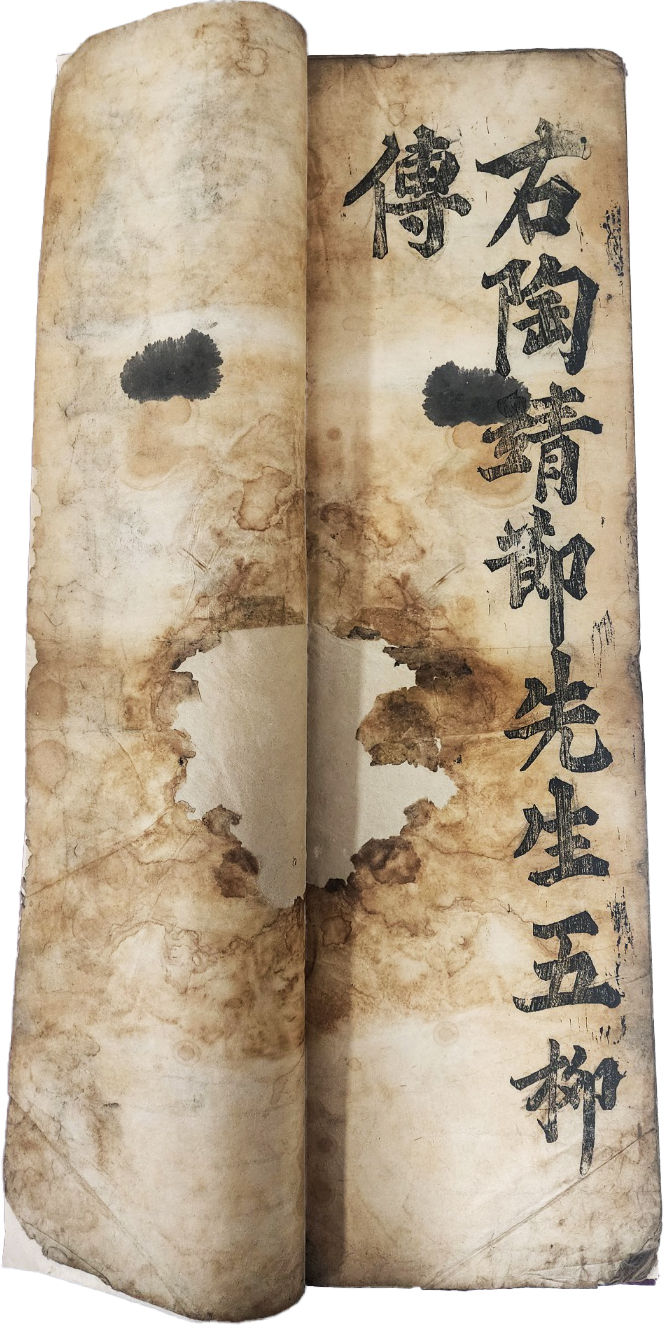 右陶靖節先生五柳
傳